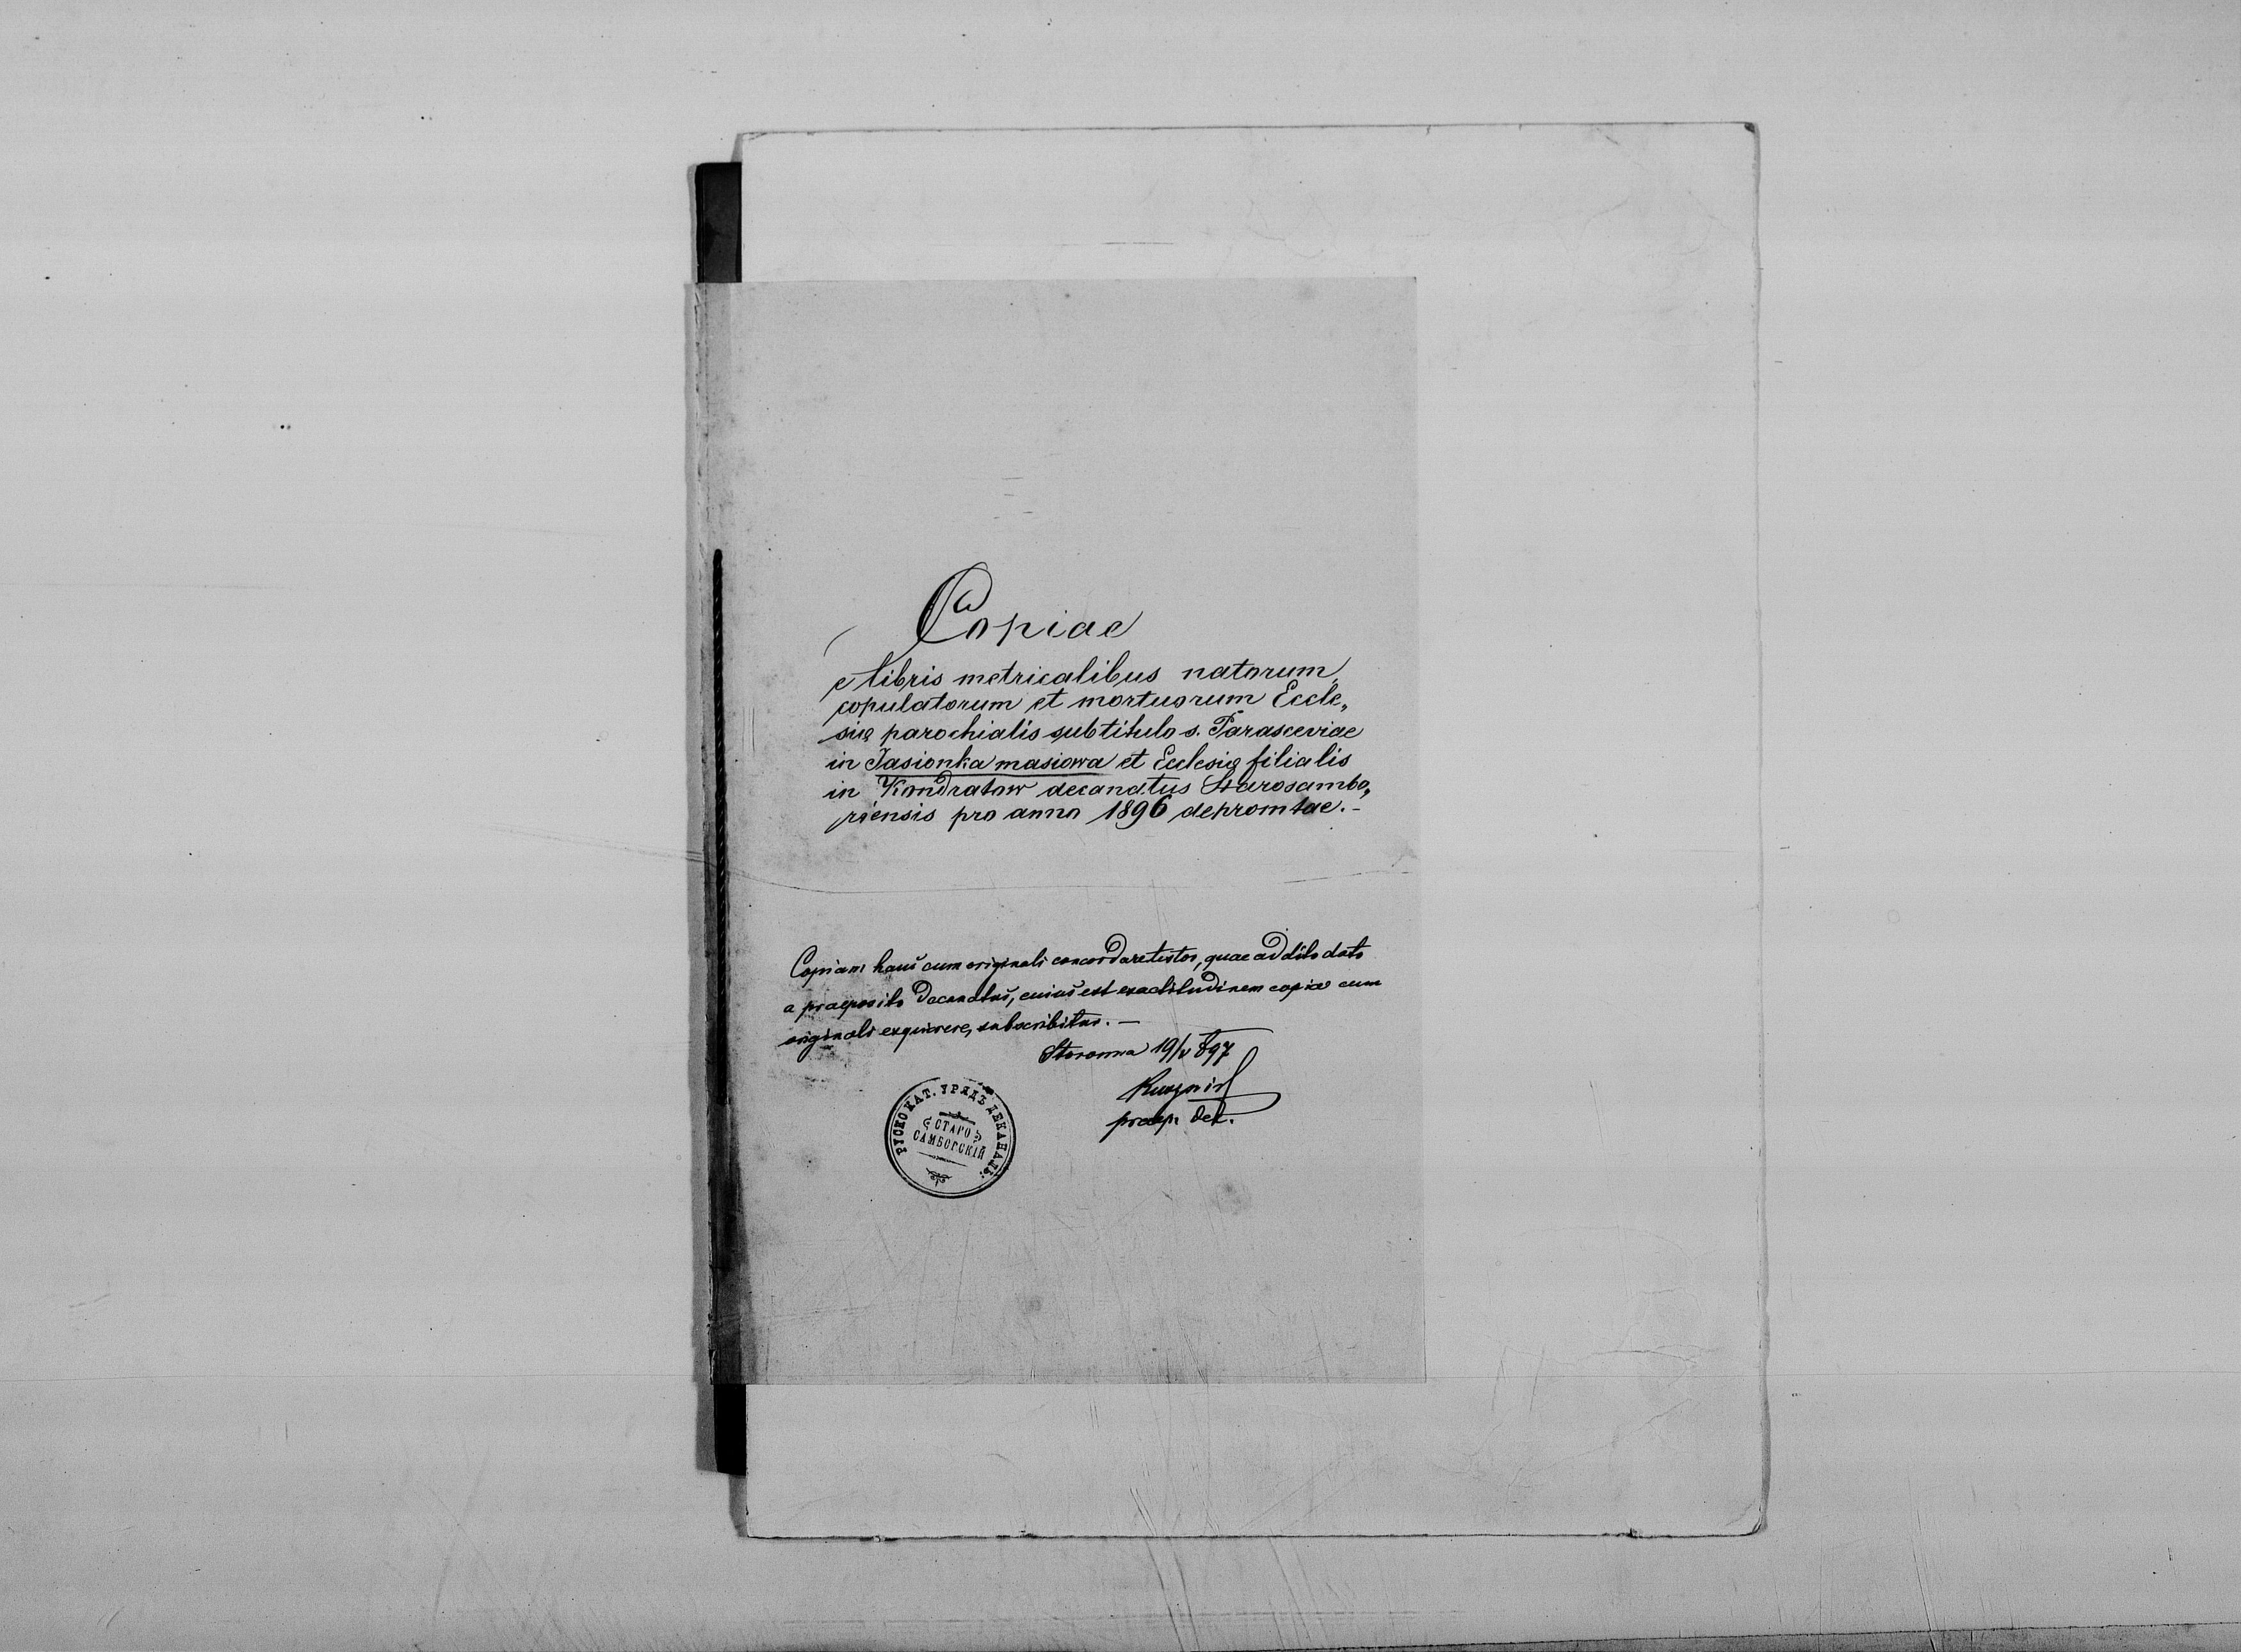 Copiae
e libris metricalibus natorum,
copulatorum et mortuorum Eccle„
się parochialis sub titulo s. Parasceviae
in Jasionka masiowa et Ecclesię filialis
in Kondratow decanatus Starosambo„
riensis pro anno 1896 depromtae.-
Copiam hanc cum originali concordare testor, quae addito dato
a praeposito decanatus, cuius est exactitudinem copiae cum
originali exquirere, subscribitur. —
Storonna 19/V 897
praep. dec.
РУСКО КАТ. УРЯДЪ ДЕКАНАЛЬ.
СТАРО
САМБОРСКІЙ